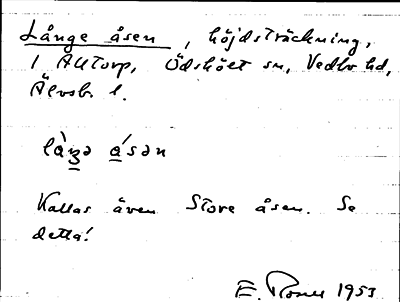 Långe åsen, höjdsträckning,
i Attorp, Ödsköet sn, Vedbo hd,
Älvsb. l.
låŋə åsən
Kallas även Store åsen. Se
detta!
E. Rosell 1953